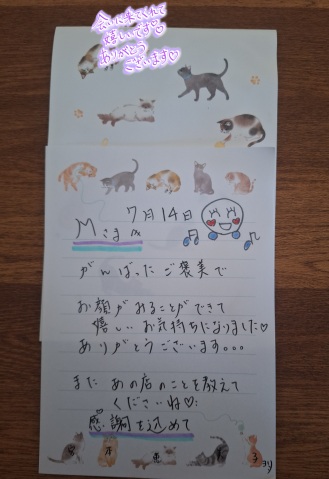 会いに来てくれて
嬉しいです♡
ありがとう
ございます♡
7月14日
Mさま
がんばったご褒美で
お顔がみることができて
嬉しいお気持ちになりました♡
ありがとうございます。。。
また あの店のことを教えて
くださいね♡
感謝を込めて
より